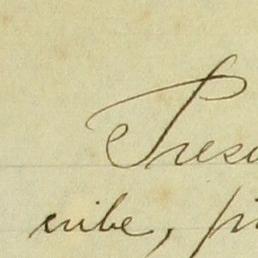 Presc
cribe, pr